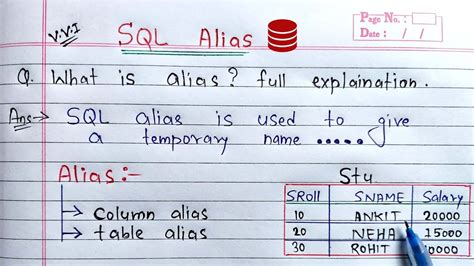 V.V.I
SQL Alias
Page No.:
Date: / /
Q. What is alias? full explaination.
Ans:→ SQL alias is used to give
a temporary name .....
Alias:-
→ Column alias
→ table alias
Stu
SRoll SNAME Salary
10 ANKIT 20000
20 NEHA 15000
30 ROHIT 0000